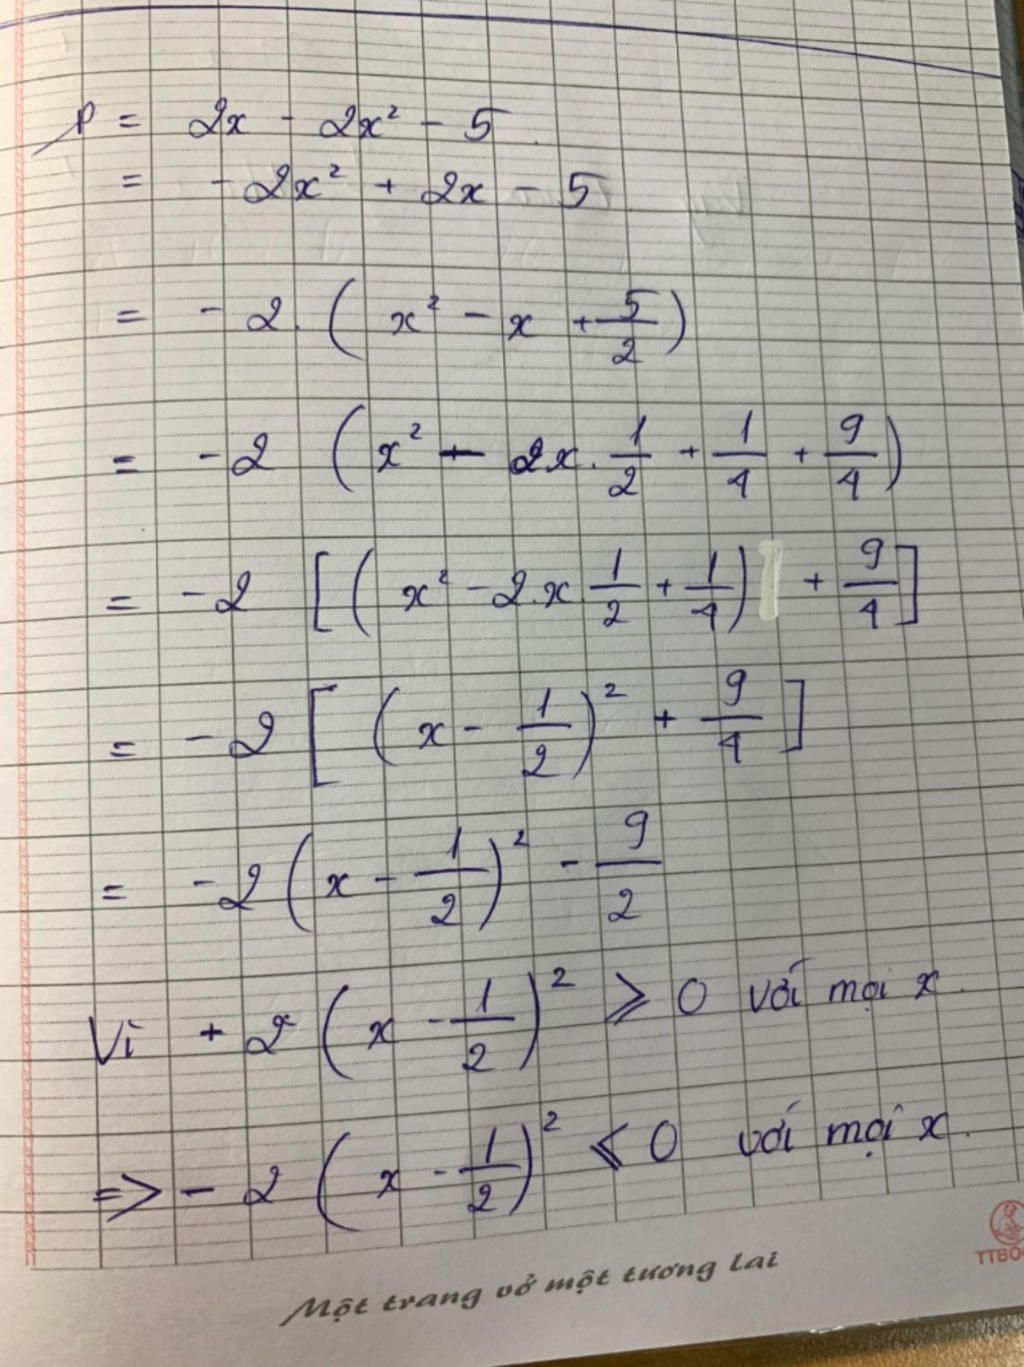 P = 2x - 2x² - 5
= - 2x² + 2x - 5
= - 2. ( x² - x + 5/2 )
= - 2 ( x² - 2x. 1/2 + 1/4 + 9/4 )
= - 2 [ ( x² - 2.x 1/2 + 1/4 ) + 9/4 ]
= - 2 [ ( x - 1/2 )² + 9/4 ]
= - 2 ( x - 1/2 )² - 9/2
Vì + 2 ( x - 1/2 )² ⩾ 0 với mọi x.
=> - 2 ( x - 1/2 )² ⩽ 0 với mọi x.
Một trang vở một tương lai